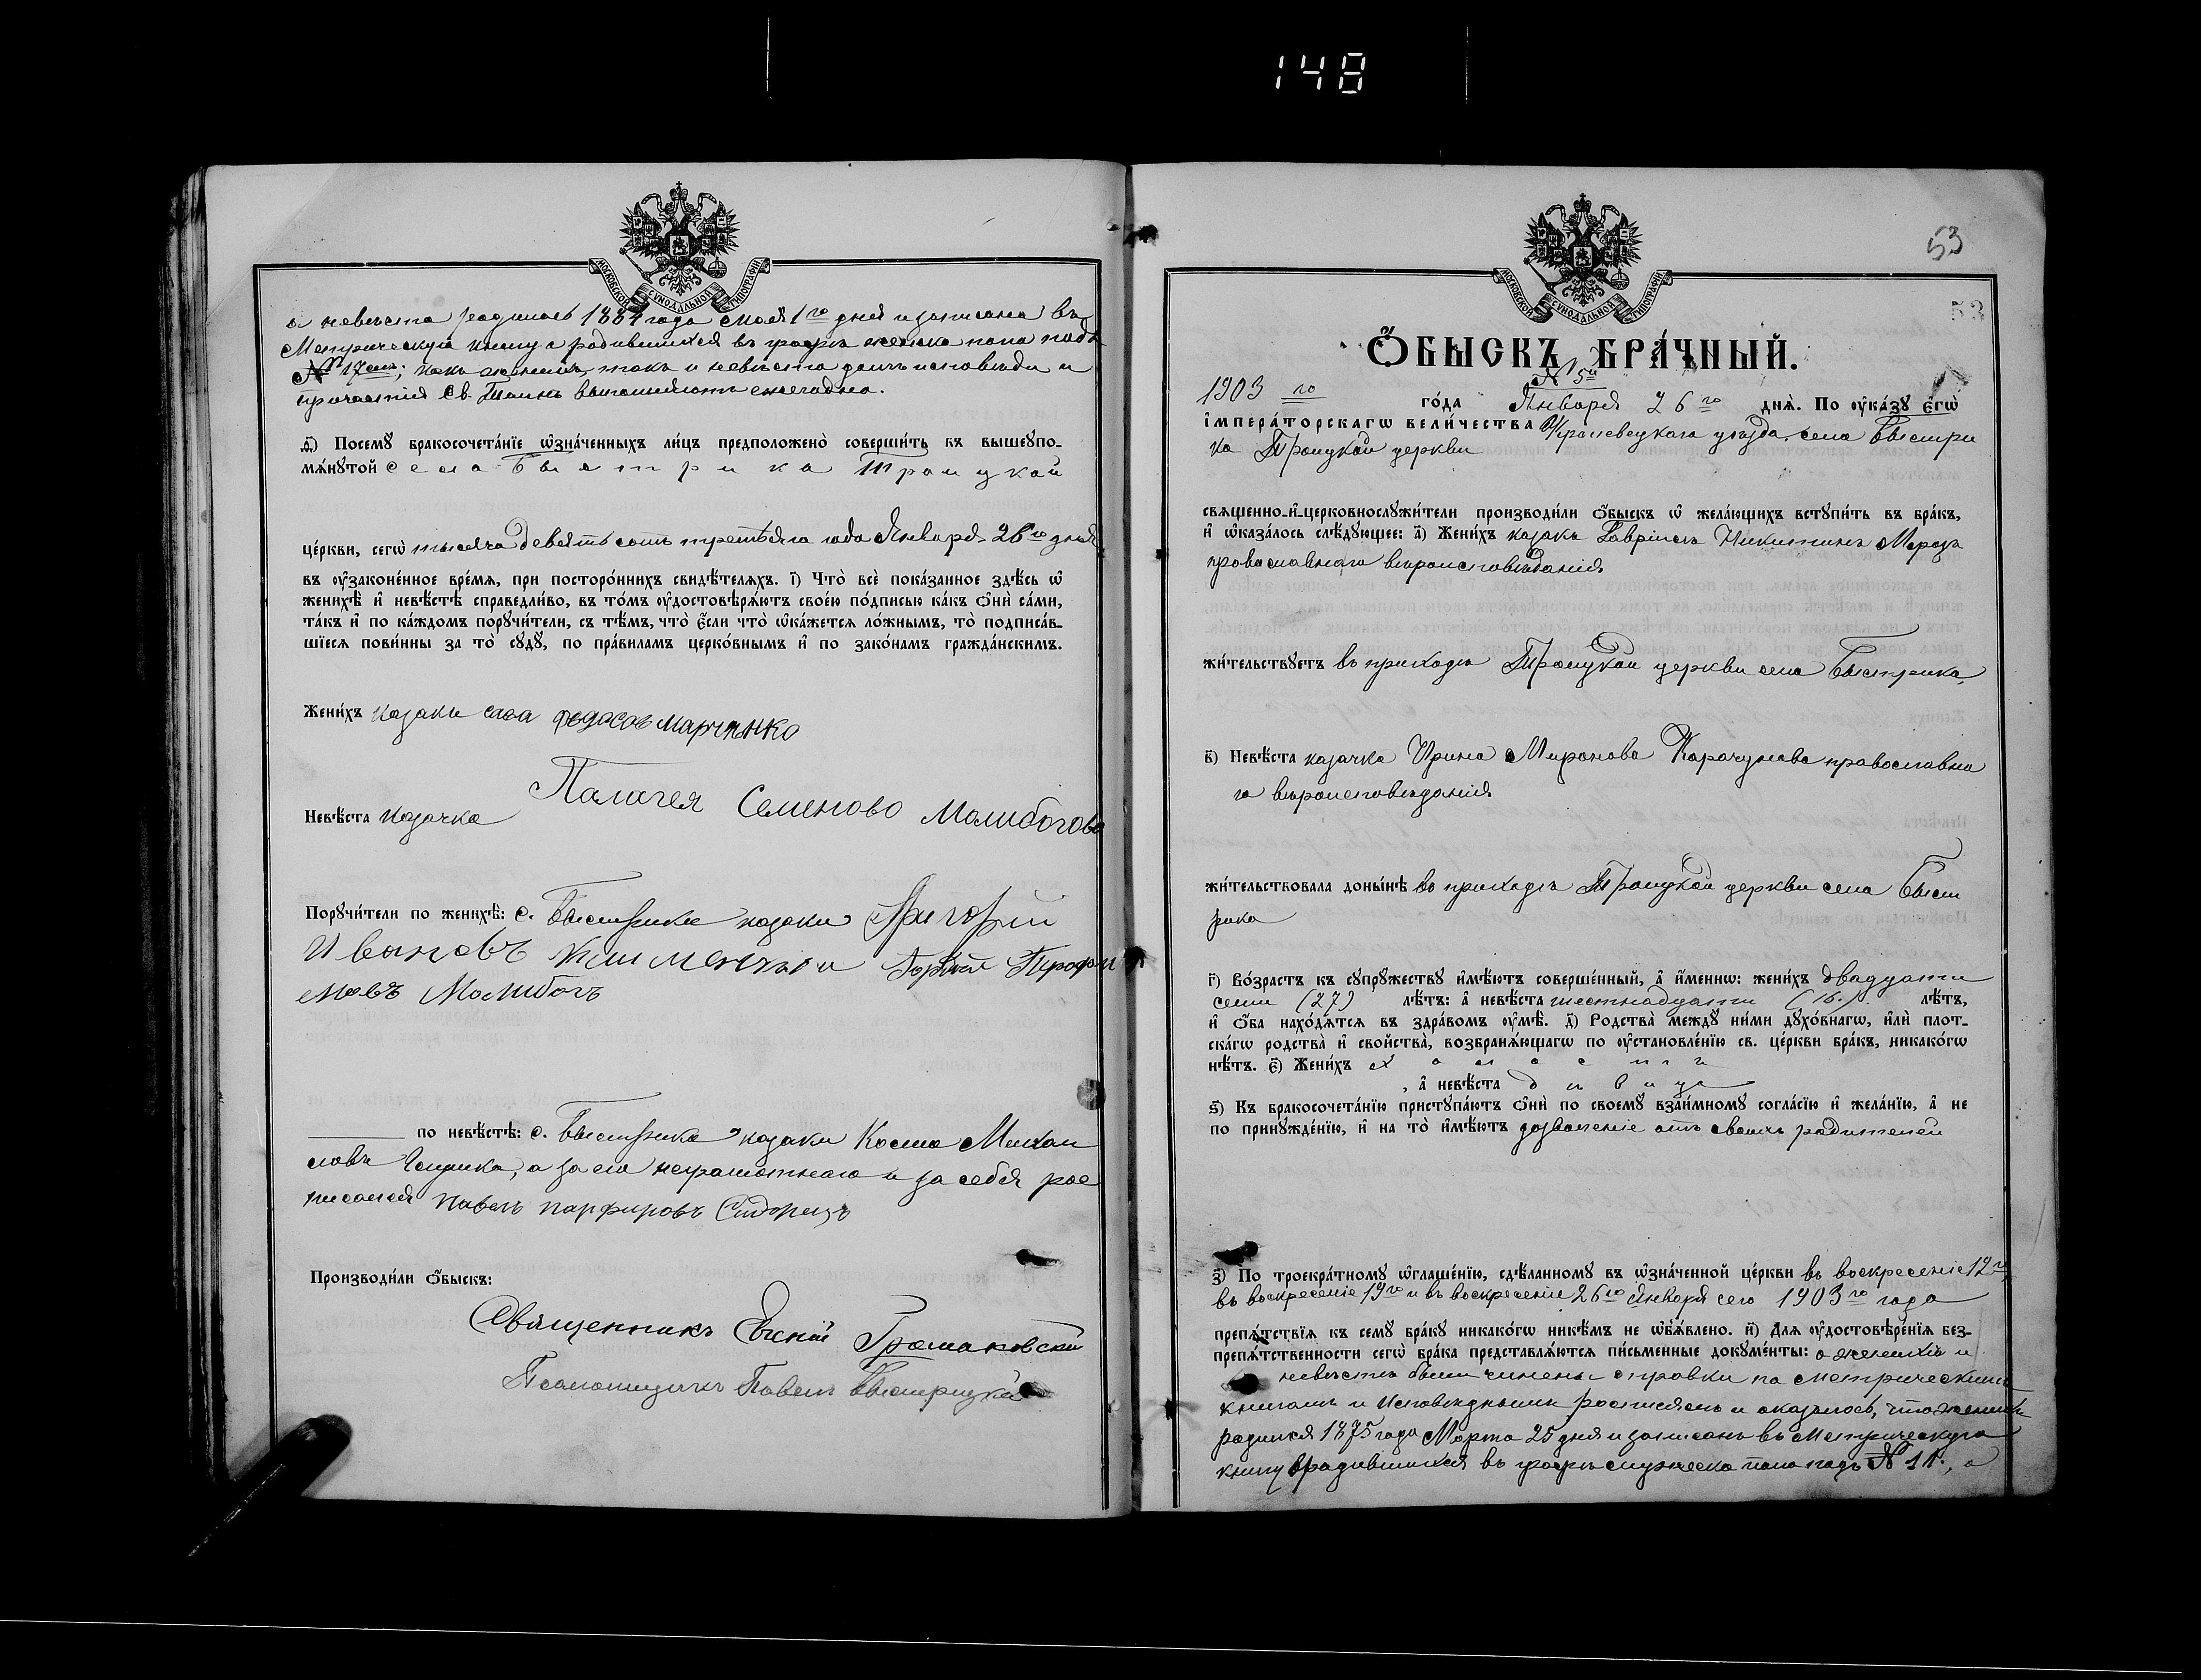 148
МОСКОВСКОЙ СУНОДАЛЬНОЙ ТИПОГРАФІИ
а невѣста родилась 1884 года Мая 1го дня и записана въ
Метрическую книгу о родившихся въ графѣ женска пола подъ
№ 17; какъ женихъ, такъ и невѣста долгъ исповѣди и
причастія Св. Таинъ выполняютъ ежегодно.
ѳ҃) Посемꙋ бракосочета́нїе ѡзна́ченныхъ ли́цъ предположено̀ соверши́ть въ вышеꙋпо-
мѧ́нꙋтой села Быстрика Троицкой
це́ркви, сегѡ̀ тысяча девятьсотъ третьяго года Января 26го дня
въ ᲂу҆зако́ненное вре́мѧ, при посторо́ннихъ свидѣ́телѧхъ. і҃) Что̀ всѐ пока́занное здѣ́сь ѡ҆
женихѣ̀ и҆ невѣ́стѣ справедли́во, въ то́мъ ᲂу҆достовѣрѧ́ютъ свое́ю по́дписью ка́къ ѻ҆нѝ са́ми,
та́къ и҆ по ка́ждомъ порꙋчи́тели, съ тѣ́мъ, что̀ є҆́сли что̀ ѡ҆ка́жетсѧ ло́жнымъ, то̀ подписа́в-
шїесѧ пови́нны за то̀ сꙋдꙋ̀, по пра́виламъ церко́внымъ и҆ по зако́намъ гражда́нскимъ.
Жени́хъ казакъ Сава Федосовъ Марченко
Невѣ́ста казачка Палагея Семенова Малибогова
Порꙋчи́тели по женихѣ̀: с. Быстрика казаки Григорій
Ивановъ и Трофи
мовъ Малибогъ
по невѣ́стѣ: с. Быстрика казаки Косма Михаи
ловъ а за его неграмотнаго и за себя рос
писался Павелъ Парфировъ Сидорецъ
Производи́ли ѻ҆́быскъ:
Священникъ Евгеній Громаковскій
Псаломщикъ Павелъ Быстрицкій
53
53
МОСКОВСКОЙ СУНОДАЛЬНОЙ ТИПОГРАФІИ
Ѻ҆́БЫСКЪ БРА́ЧНЫЙ.
№ 5й
1903го го́да Января 26го днѧ̀. По ᲂу҆ка́зꙋ є҆гѡ̀
і҆мпера́торскагѡ вели́чества Кролевецкаго уѣзда, села Быстри
ка Троицкой церкви
свѧщенно-и҆-церковнослꙋжи́тели производи́ли ѻ҆́быскъ ѡ҆ жела́ющихъ встꙋпи́ть въ бра́къ,
и҆ ѡ҆каза́лось слѣ́дꙋющее: а҃) Жени́хъ казакъ Гавріилъ Никитинъ Морозъ
православнаго вѣроисповѣданія
жи́тельствꙋетъ въ приходѣ Троицкой церкви села Быстрика,
в҃) Невѣ́ста казачка Ирина Миронова Карачунова православна
го вѣроисповѣданія
жи́тельствовала доны́нѣ въ приходѣ Троицкой церкви села Быст
рика
г҃) Во́зрастъ къ сꙋпрꙋжествꙋ и҆мѣ́ютъ соверше́нный, а҆ и҆́меннѡ: жени́хъ двадцати
семи (27) лѣ́тъ: а҆ невѣ́ста шестнадцати (16.) лѣ́тъ,
и҆ ѻ҆́ба нахо́дѧтсѧ въ здра́вомъ ᲂу҆мѣ̀. д҃) Родства̀ междꙋ̀ ни́ми дꙋхо́внагѡ, и҆лѝ плот-
ска́гѡ родства̀ и҆ сво́йства, возбранѧ́ющагѡ по ᲂу҆становле́нїю св. це́ркви бра́къ, никако́гѡ
нѣ́тъ. є҃) Жени́хъ холостъ
, а҆ невѣ́ста дѣвица
ѕ҃) Къ бракосочета́нїю пристꙋпа́ютъ ѻ҆нѝ по своемꙋ̀ взаи́мномꙋ согла́сїю и҆ жела́нїю, а҆ не
по принꙋжде́нїю, и҆ на то̀ и҆мѣ́ютъ дозволеніе отъ своихъ родителей
з҃) По троекра́тномꙋ ѡ҆глаше́нїю, сдѣ́ланномꙋ въ ѡ҆зна́ченной це́ркви въ воскресеніе 12го,
въ воскресеніе 19го и въ воскресеніе 26го Января сего 1903го года
препѧ́тствїѧ къ семꙋ̀ бра́кꙋ никако́гѡ никѣ́мъ не ѡ҆б̾ѧ́влено. и҃) Длѧ ᲂу҆достовѣре́нїѧ без-
препѧ́тственности сегѡ̀ бра́ка представлѧ́ютсѧ пи́сьменные докꙋме́нты: о женихѣ и
невѣстѣ были чинены справки по метрическимъ
книгамъ и исповѣднымъ росписямъ и оказалось, что женихъ
родился 1875 года Марта 25 дня и записанъ въ Метрическую
книгу о родившихся въ графѣ мужеска пола подъ № 11., а